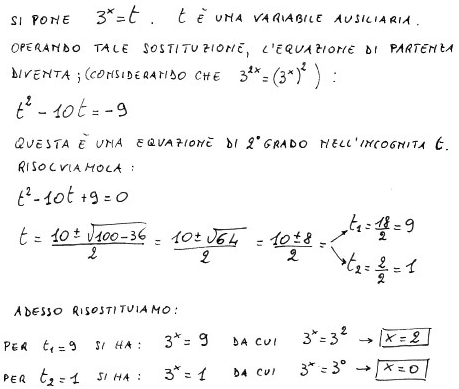 SI PONE 3^x = t . t È UNA VARIABILE AUSILIARIA.
OPERANDO TALE SOSTITUZIONE, L'EQUAZIONE DI PARTENZA
DIVENTA ; (CONSIDERANDO CHE 3^2x = (3^x)^2 ) :
t² - 10t = -9
QUESTA È UNA EQUAZIONE DI 2° GRADO NELL'INCOGNITA t.
RISOLVIAMOLA :
t² - 10t + 9 = 0
t = (10 ± √(100-36))/2 = (10 ± √64)/2 = (10 ± 8)/2 = → t₁ = 18/2 = 9
→ t₂ = 2/2 = 1
ADESSO RISOSTITUIAMO :
PER t₁ = 9 SI HA : 3^x = 9 DA CUI 3^x = 3² → x = 2
PER t₂ = 1 SI HA : 3^x = 1 DA CUI 3^x = 3⁰ → x = 0